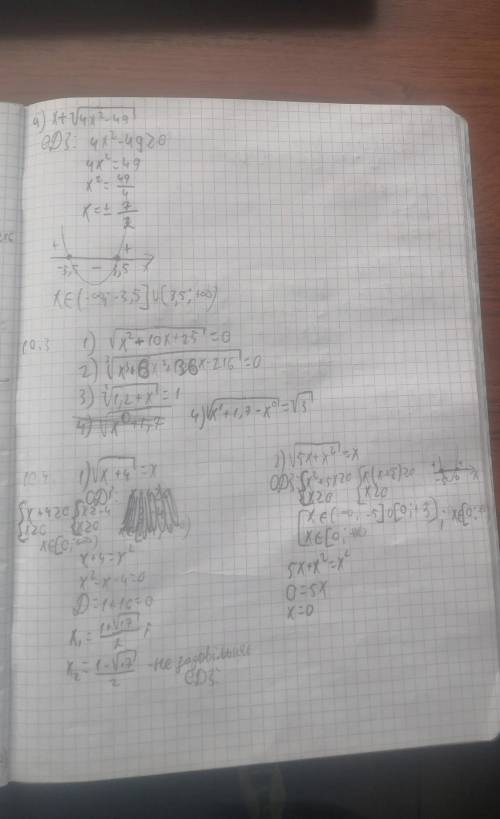 a) x+√4x²-49
ОДЗ: 4x²-49≥0
4x²=49
x²=49/4
x=±7/2
+ - +
-3,5 3,5 x
x∈(-∞;-3,5]∪[3,5;+∞)
10.3 1) √x²+10x+25=0
2) ³√x³+6x²+36x-216=0
3) √1,2+x=1
4) √x²+1,7-x⁰=√3
10.4 1) √x+4=x
ОДЗ:
{x+4≥0 x≥0 {x≥-4 x≥0
x∈[0;+∞)
x+4=x²
x²-x-4=0
D=1+16=0
x₁=1+√17/2
x₂=1-√17/2 -не задовільняє ОДЗ
2) √5x+x²=x
ОДЗ: {x²+5x≥0 x≥0 {x(x+5)≥0 x≥0
[x∈(-∞;-5]∪[0;+∞); x∈[0;+
x∈[0;+∞
5x+x²=x²
0=5x
x=0